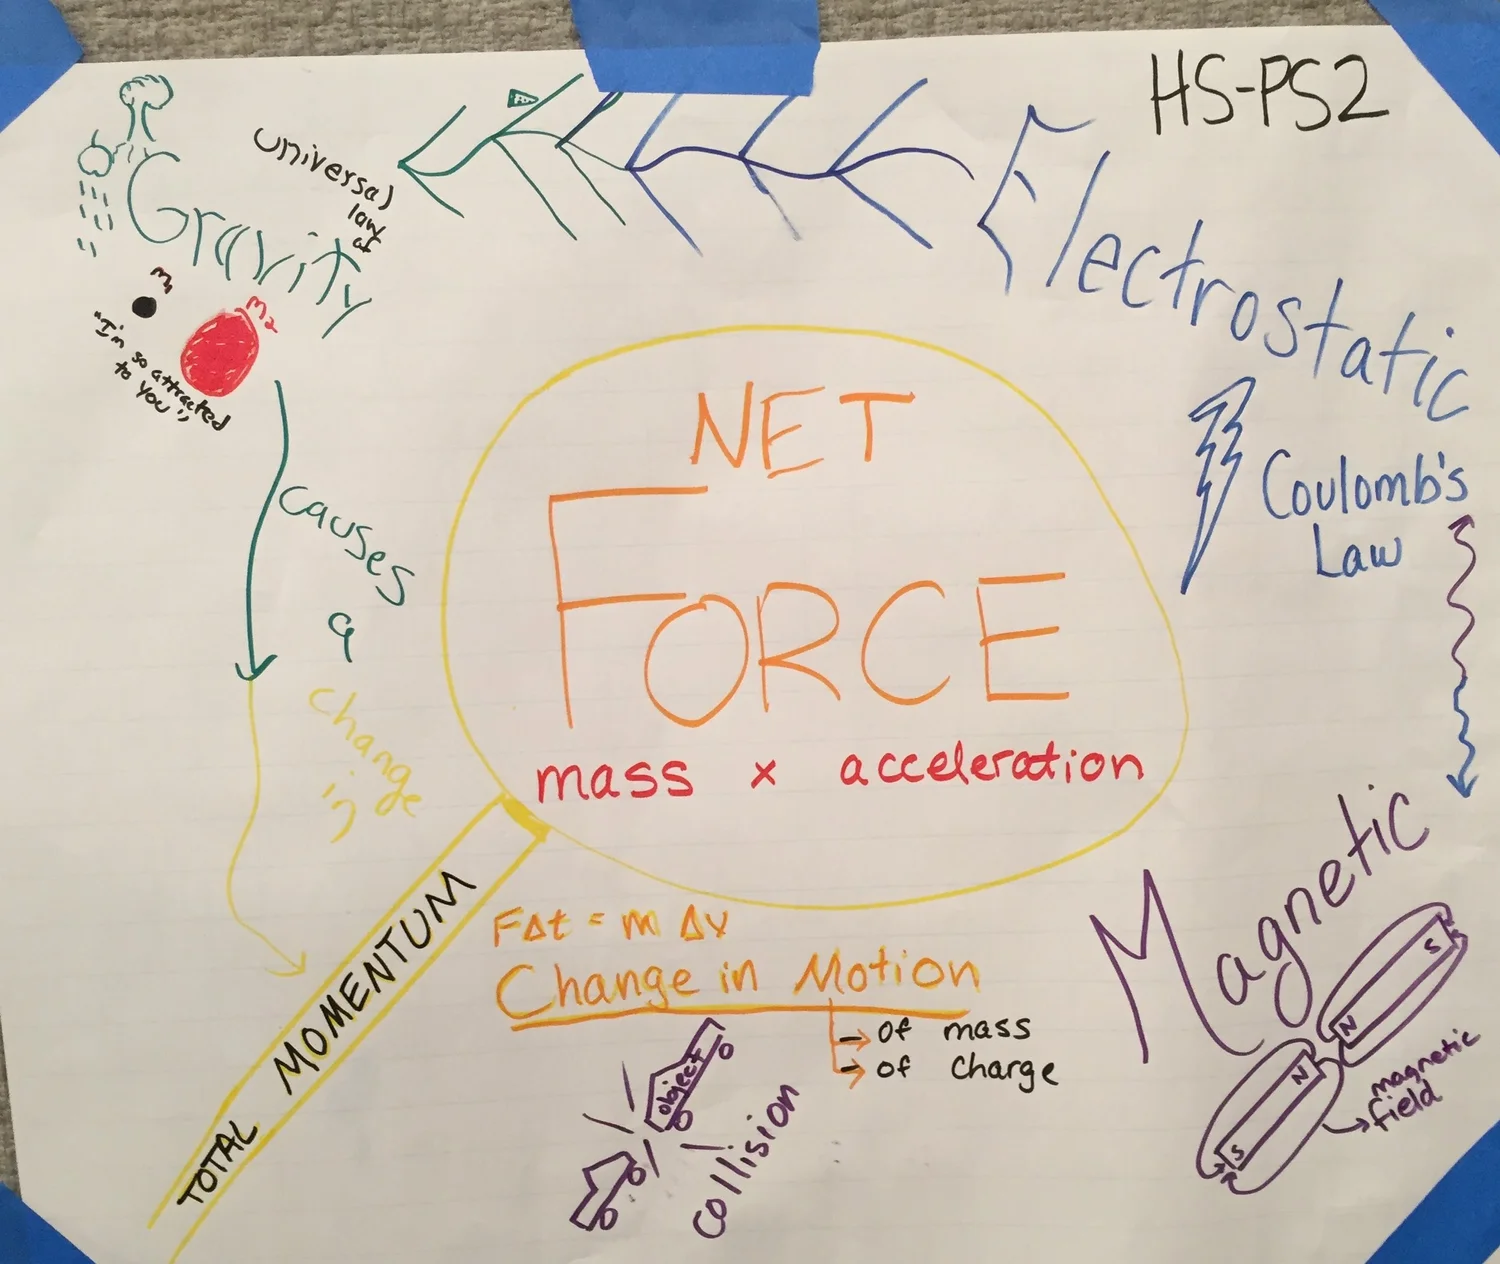 HS-PS2
Universal
law
of
Gravity
m1
m2
"I'm so attracted
to you"
Electrostatic
Coulomb's
Law
NET
FORCE
mass x acceleration
causes
a
change
in
TOTAL MOMENTUM
FΔt = m Δv
Change in Motion
→ of mass
→ of charge
object
collision
Magnetic
S
N
N
S
magnetic
field